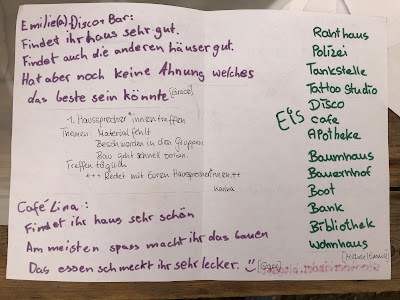 Emilie(a), Disco + Bar:
Findet ihr haus sehr gut.
Findet auch die anderen häuser gut.
Hat aber noch keine Ahnung welches
das beste sein könnte [Grace]
1. Haussprecher*innentreffen
Themen: Material fehlt
Beschwerden in den Gruppen
Bau geht schnell voran.
Treffen täglich
+++ Redet mit Euren Haussprecher*innen ++
Karina
Café, Lina:
Findet ihr haus sehr schön
Am meisten spass macht ihr das bauen
Das essen schmeckt ihr sehr lecker. [Grace]
Rathaus
Polizei
Tankstelle
Tattoo Studio
Disco
Eis cafe
Apotheke
Baumhaus
Bauernhof
Boot
Bank
Bibliothek
wohnhaus